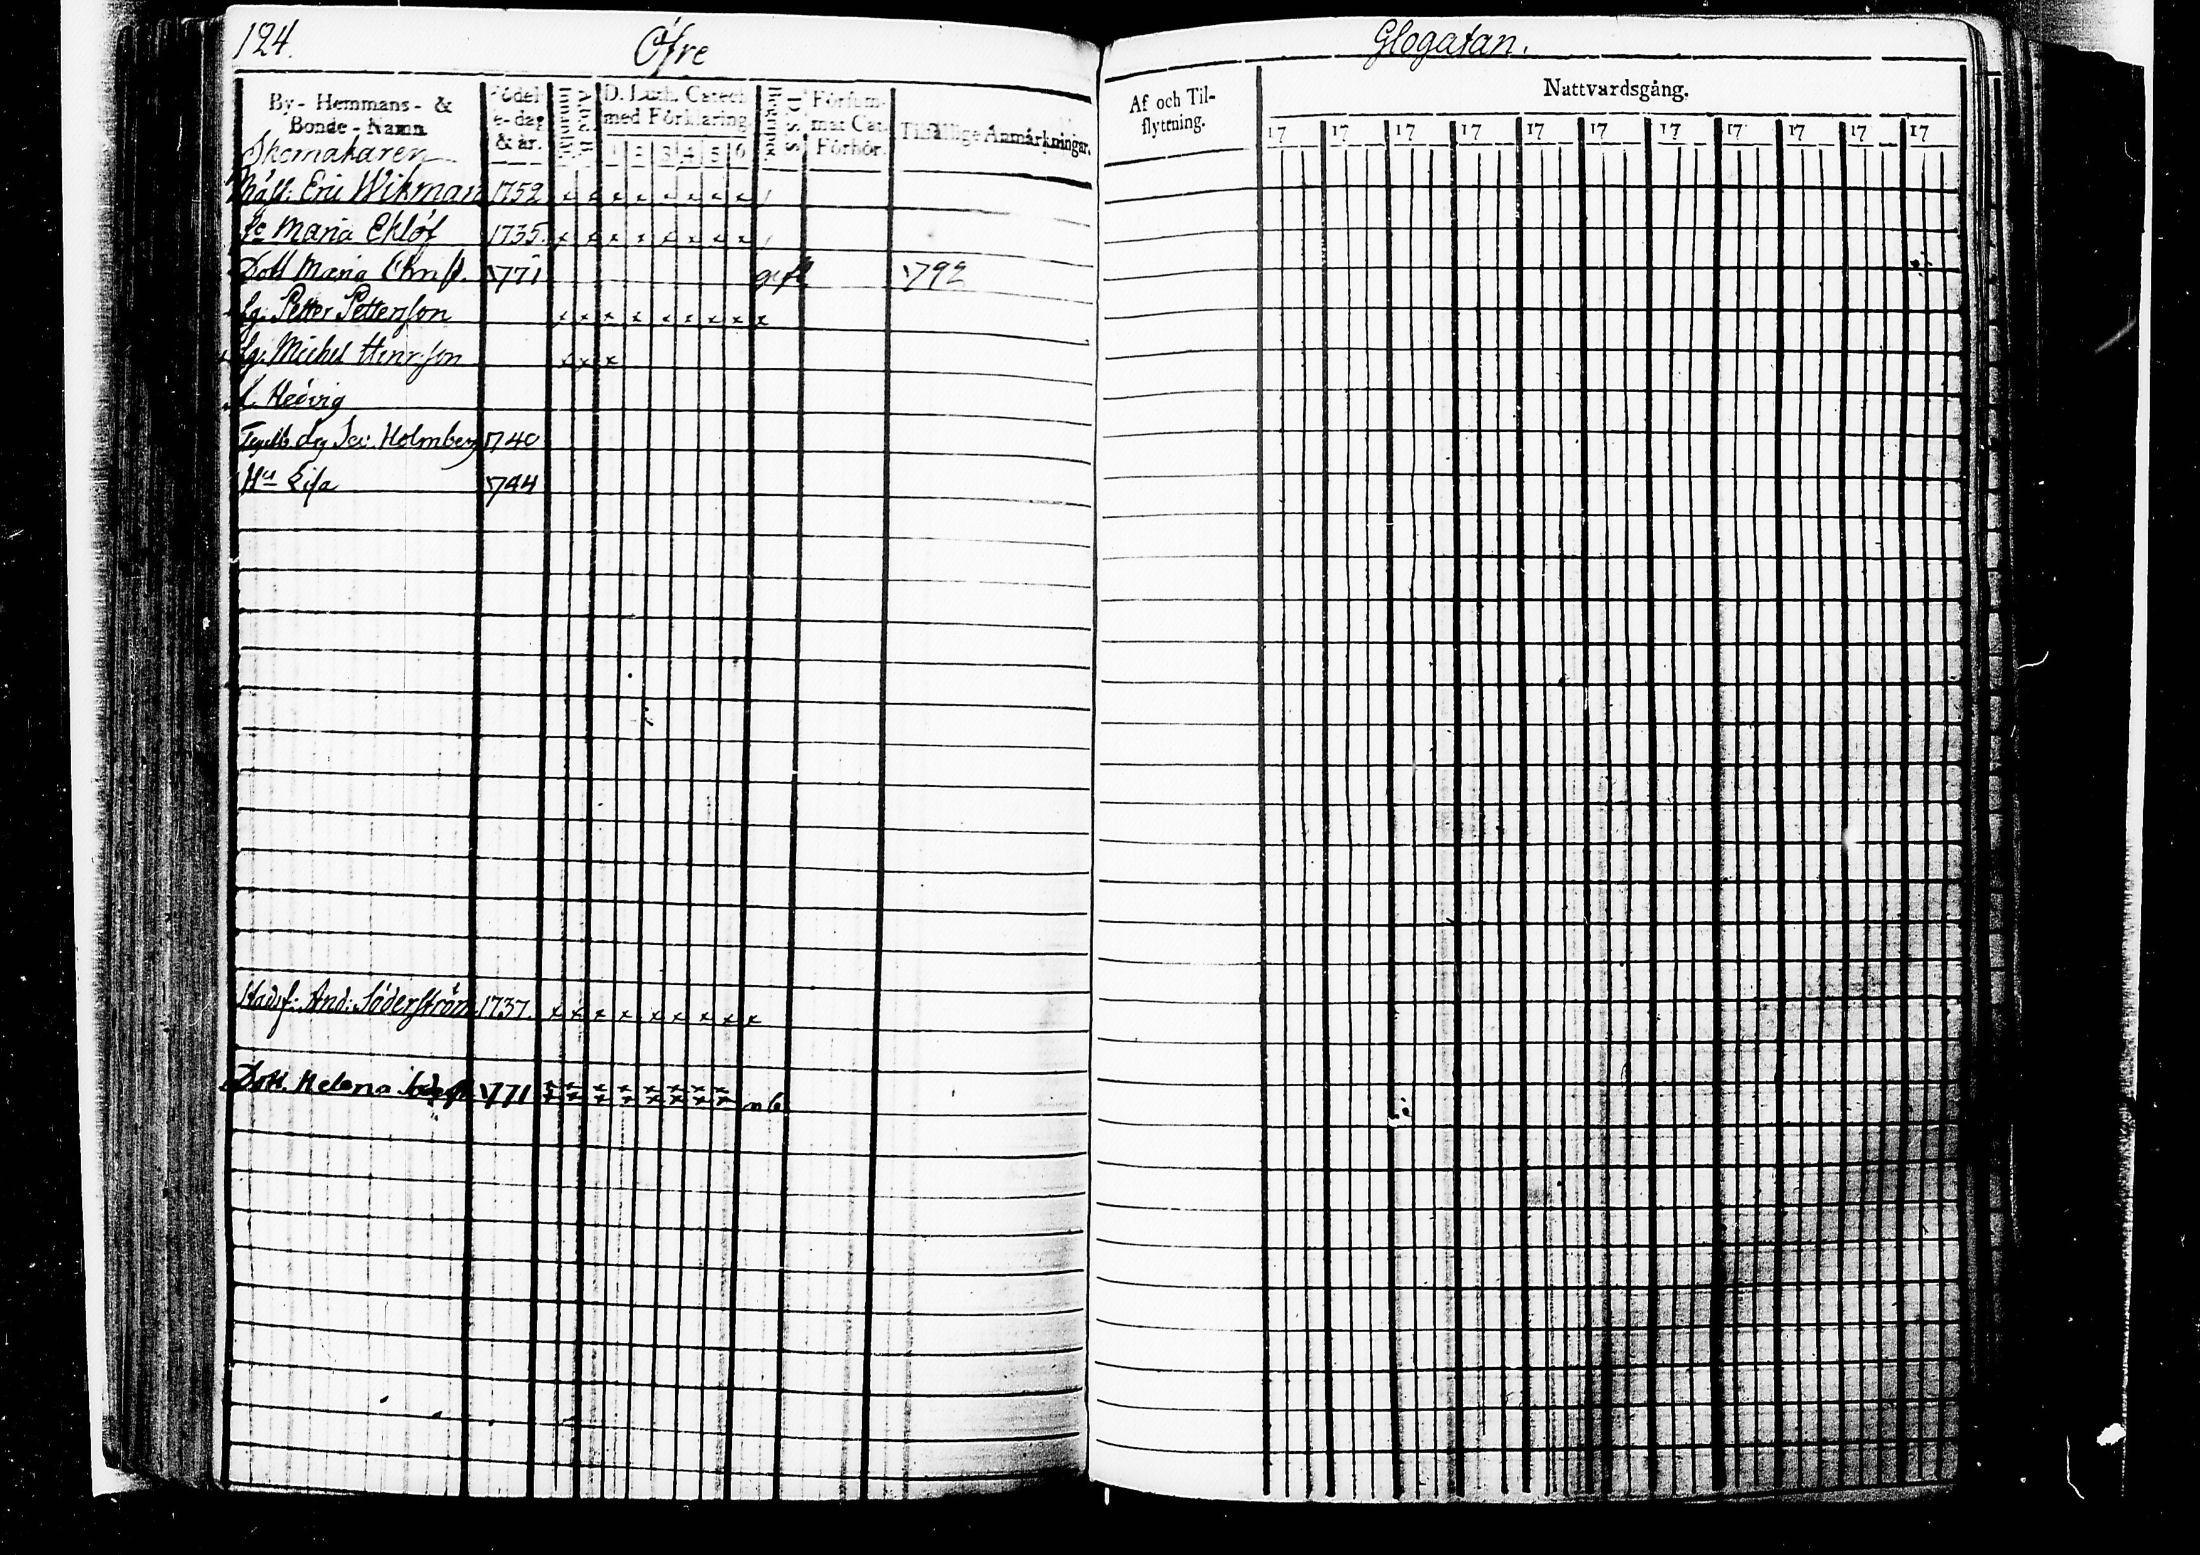 124. Öfre
By- Hemmans- & Bonde-Namn
Födel-
se-dag
& år.
D. Luth. Catech.
med Förklaring.
1 2 3 4 5 6
Försum-
mat Cat.
Förhör.
Tilfällige Anmärkningar.
Skomakaren
Mäst: Eric Wikman 1752 x x x x x x x x
Maria Eklöf 1735. x x x x x x x x
Dott Maria Christ. 1771 gift 1792
Lg: Petter Petterson x x x x x x x x x
Lg: Michel Henrsson x x x
Hedvig
Holmberg 1740
Hu Lisa 1744
And: Söderström 1737. x x x x x x x x x
Dott. Helena 1771 x x x x x x x x
Glogatan.
Af och Til-
flyttning.
Nattvardsgång.
17 17 17 17 17 17 17 17 17 17 17